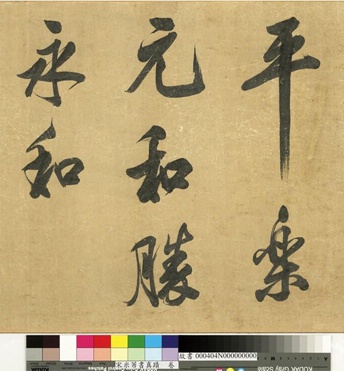 平樂
元和勝
永和
故書 000404N000000000
KODAK Gray Scale